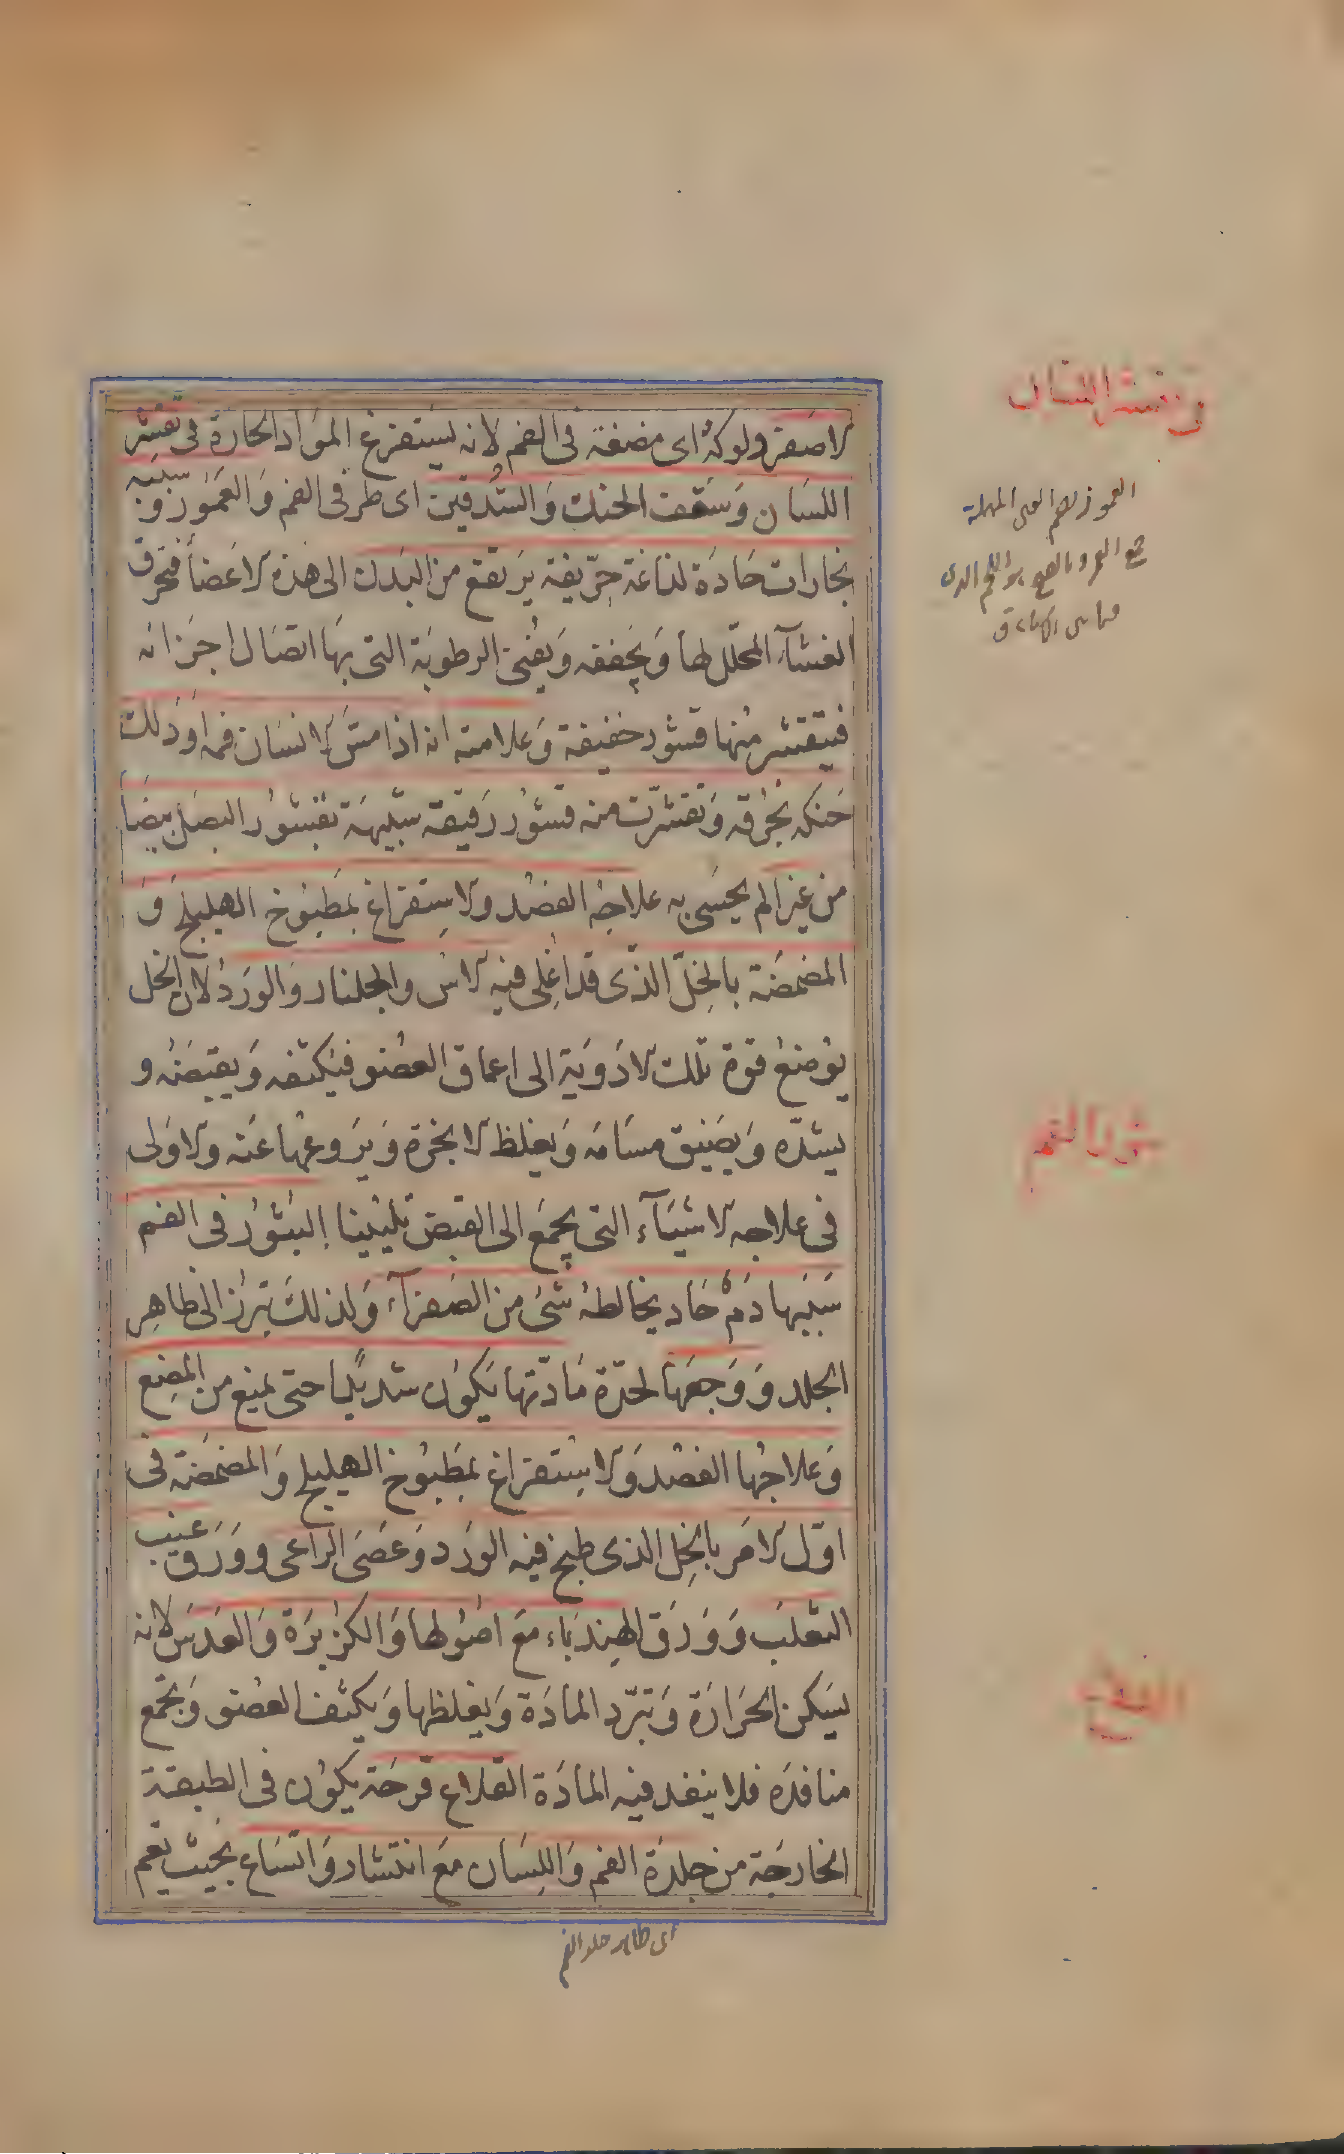 الاصفر ولوكه اى مضغه فى الفم لانه يستفرغ المواد الحارة فى تقشر
اللسان وسقف الحنك والشدقين اى طرفى الفم والعمور وسببه
بخارات حادة لذاعة حريفة يرتفع من البدن الى هذه الاعضأ فتحرق
الغشآء المحلل لها ويجففه ويفنى الرطوبة التى بها اتصال اجزائه
فيتقشر منها قشور خفيفة وعلامته انه اذا مس الانسان فمه او دلك
حنكه بخرقه وتقشرت منه قشور رقيقة شبيهة بقشور البصل بيضا
من غير الم يحس به علاجه الفصد والاستفراغ بمطبوخ الهليلج و
المضمضة بالخل الذى قد اغلى فيه الاس والجلنار والورد لان الخل
يوضع قوة تلك الادوية الى اعماق العضو فيكثفه ويقبضه و
يشدّه ويضيق مسامه ويغلظ الابخرة ويروعها عنه والاولى
فى علاجه الاشيآء التى يجمع الى القبض تليينا البثور فى الفم
سببها دم حاد يخالطه شئ من الصفرآء ولذلك تبرز الى ظاهر
الجلد ووجعها لحدّة مادّتها يكون شديدًا حتى يمنع من المضغ
وعلاجها الفصد والاستفراغ بمطبوخ الهليلج والمضمضة فى
اوّل الامر بالخل الذى طبخ فيه الورد وعصى الراعى وورق عنب
الثعلب وورق الهندباء مع اصولها والكزبرة والعدس لانه
يسكن الحرارة وتبرّد المادة ويغلظها ويكثف العضو ويجمع
منافذه فلا ينفد فيه المادة القلاع قرحة يكون فى الطبقة
الخارجة من جلدة الفم واللسان مع انتشار واتساع بحيث تعم
اى ظاهر جلد الفم
فى تقشر اللسان
العمور بضم العين المهملة
جمع العمر وبالفتح هو اللحم الذى
بثور الفم
القلاع